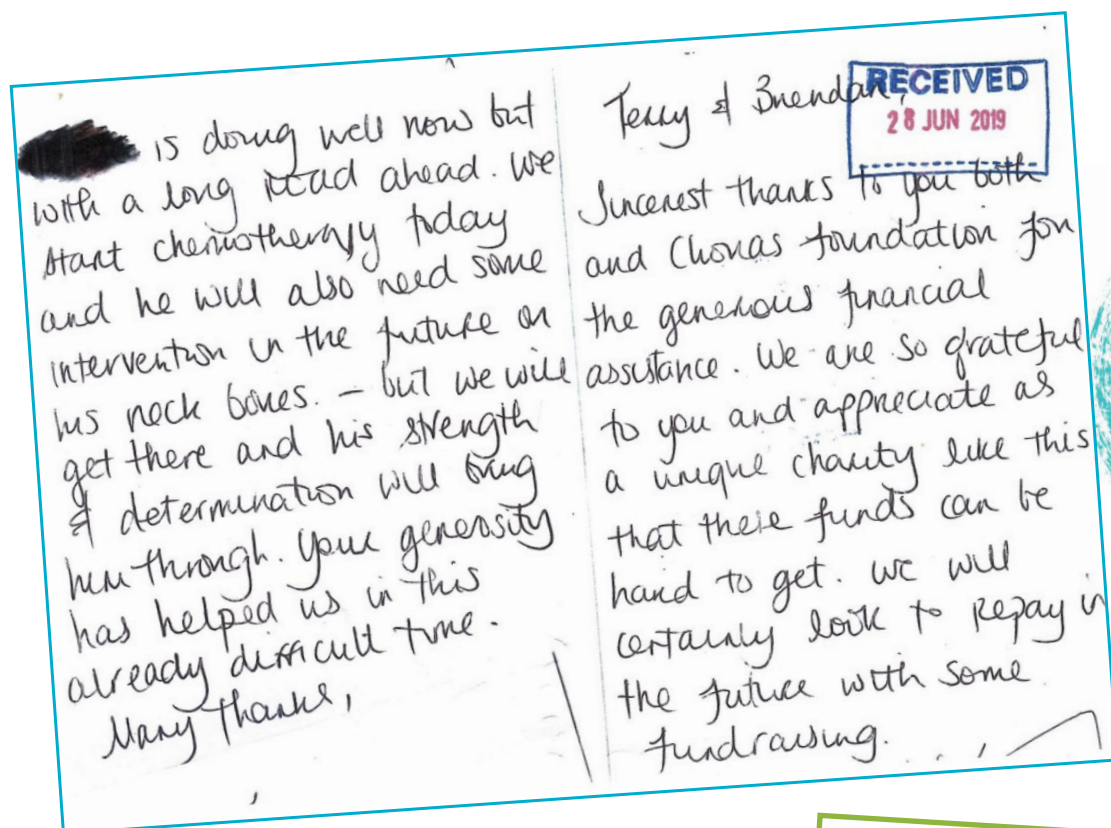 is doing well now but
with a long road ahead. We
start chemotherapy today
and he will also need some
intervention in the future on
his neck bones. – but we will
get there and his strength
& determination will bring
him through. Your generosity
has helped us in this
already difficult time.
Many thanks,
Terry & Brendan,
RECEIVED
28 JUN 2019
Sincerest thanks to you both
and Clionas foundation for
the generous financial
assistance. We are so grateful
to you and appreciate as
a unique charity like this
that these funds can be
hard to get. We will
certainly look to repay in
the future with some
fundraising.